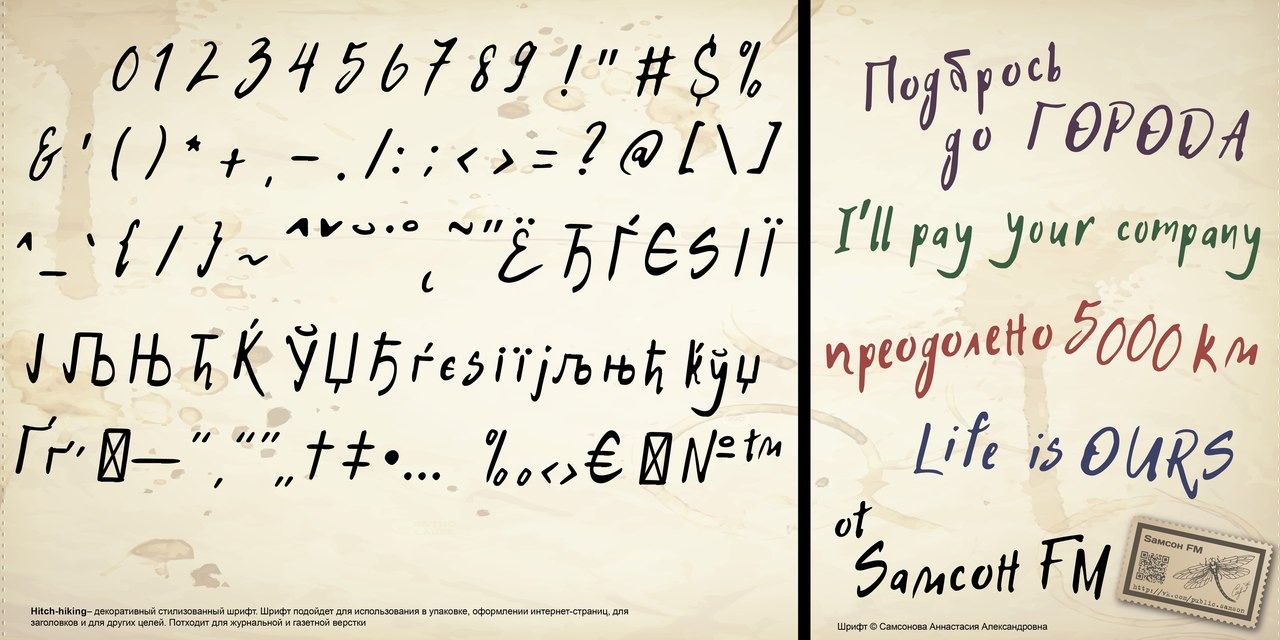 0 1 2 3 4 5 6 7 8 9 ! " # $ %
& ' ( ) * + , – . / : ; < > = ? @ [ \ ]
^ _ ` { / } ~ ^ ˇ ˘ ˙ ° ˛ ~ ˝ Ё Ђ Ѓ Є Ѕ І Ї
Ј Љ Њ Ћ Ќ Ў Џ Ђ ѓ є ѕ і ї ј љ њ ћ ќ ў џ
Ґ ґ ’ — ” ‚ “ ” „ † ‡ • … ‰ < > € № ™
Hitch-hiking– декоративный стилизованный шрифт. Шрифт подойдет для использования в упаковке, оформлении интернет-страниц, для
заголовков и для других целей. Потходит для журнальной и газетной верстки
Подбрось
до ГОРОДА
I'll pay your company
преодолено 5000 км
Life is OURS
от
Sамсон FM
Sамсон FM
http://vk.com/public.samson
Шрифт © Самсонова Аннастасия Александровна